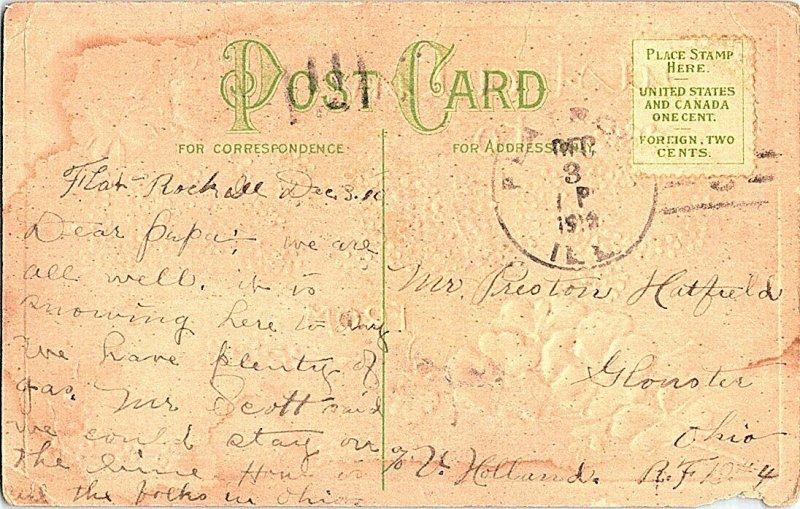 POST CARD
FOR CORRESPONDENCE
FOR ADDRESS ONLY
PLACE STAMP
HERE.
UNITED STATES
AND CANADA
ONE CENT.
FOREIGN, TWO
CENTS.
DEC
3
1 P
ILL
Flat Rock Ill Dec. 3.
Dear Papa; we are
all well. it is
snowing here to day
we have plenty of
gas. Mr Scott said
we could stay on
the How is
all the folks in Ohio.
Mr Preston Hatfield
Glouster
Ohio
% V. Holland. R.F.D. #4
FROM